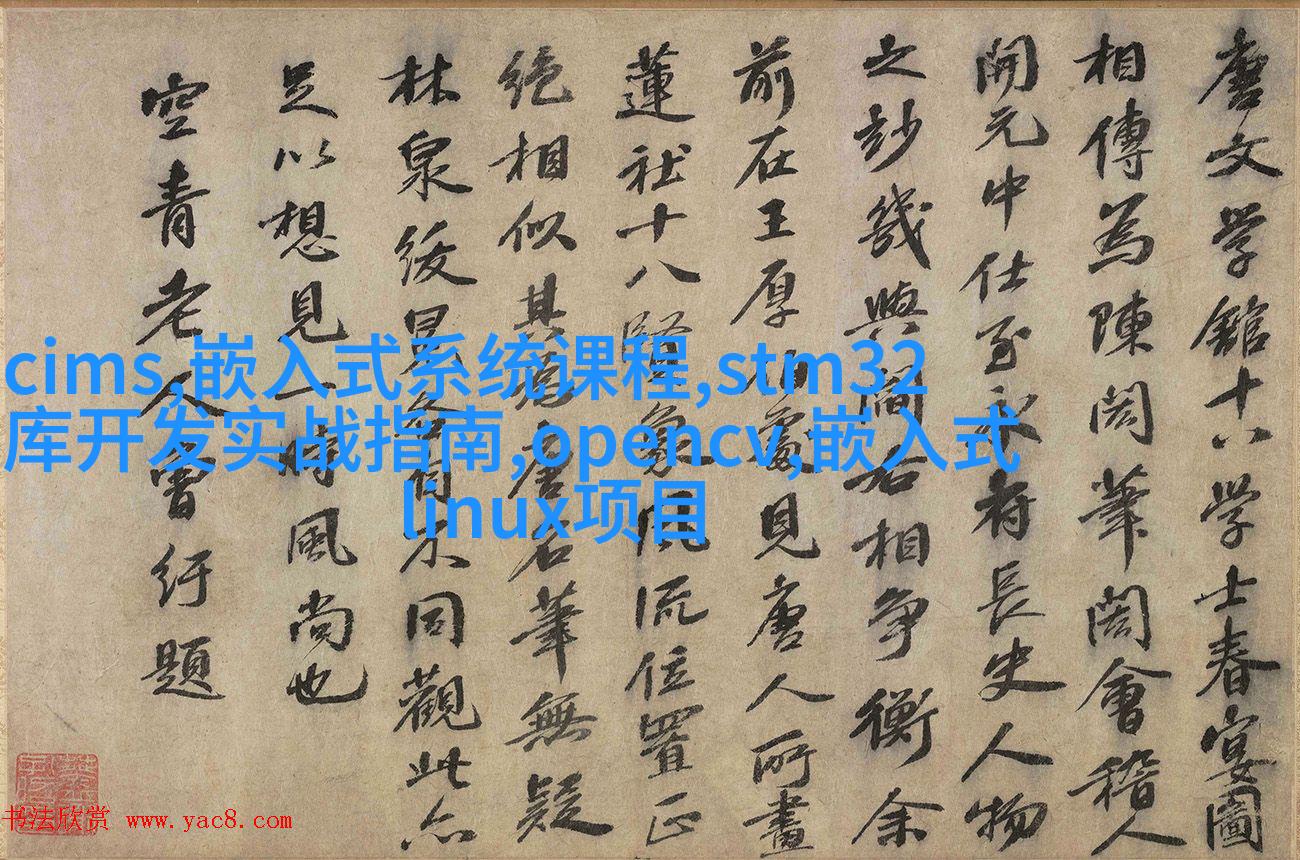 唐文学館十八学士春宴圖
相傳為陳閎筆閎會稽人
開元中仕至永府長史人物
之玅幾與閻右相争衡余
前在王厚伯處見唐人所畫
蓮社十八賢象風流位置正
绝相似其為唐名筆無疑
林泉綬冕各自不同觀此亦
足以想見一時風尚也
空青老人曾紆題
cims,嵌入式系统课程,stm32
库开发实战指南,opencv,嵌入式
linux项目
书法欣赏 www.yac8.com